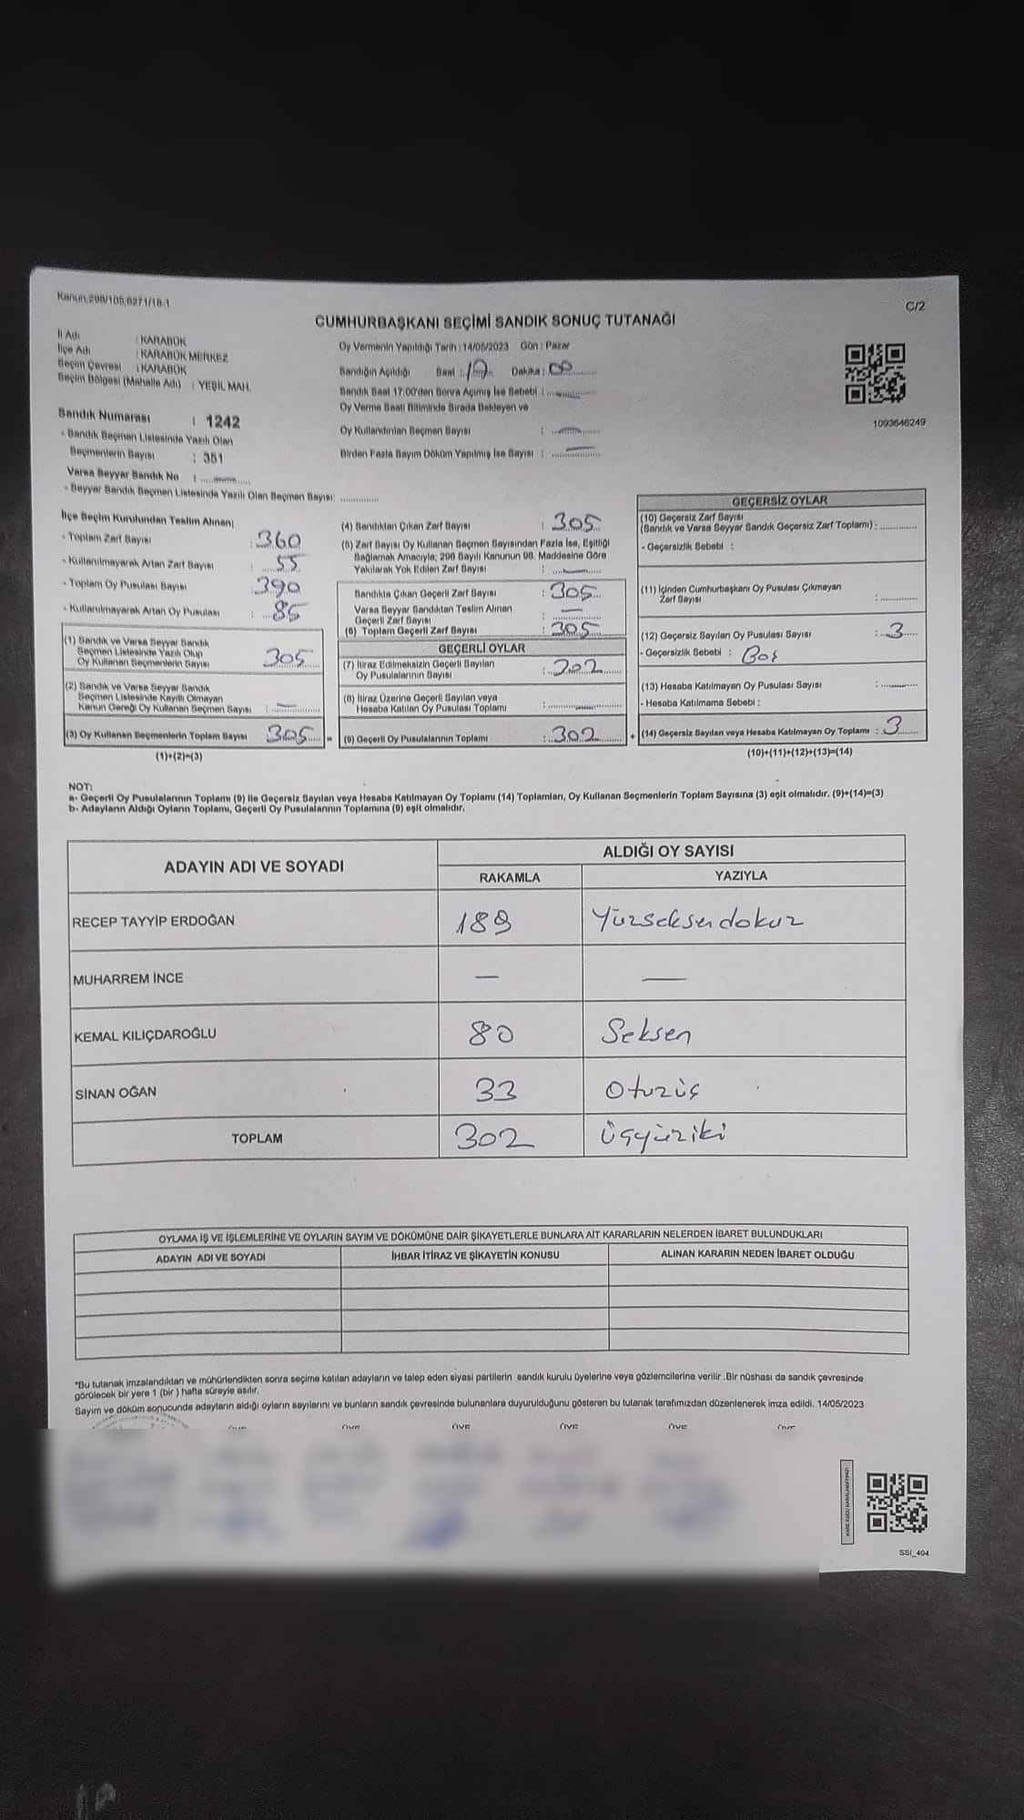 Kanun:298/105,6271/18-1
C/2
CUMHURBAŞKANI SEÇİMİ SANDIK SONUÇ TUTANAĞI
İl Adı : KARABÜK
İlçe Adı : KARABÜK MERKEZ
Seçim Çevresi : KARABÜK
Seçim Bölgesi (Mahalle Adı) : YEŞİL MAH.
Oy Vermenin Yapıldığı Tarih : 14/05/2023 Gün : Pazar
Sandığın Açıldığı Saat : 17 Dakika : 00
Sandık Saat 17:00'den Sonra Açılmış İse Sebebi :
Oy Verme Saati Bitiminde Sırada Bekleyen ve
Oy Kullandırılan Seçmen Sayısı : —
Birden Fazla Sayım Döküm Yapılmış İse Sayısı : —
1093646249
Sandık Numarası : 1242
- Sandık Seçmen Listesinde Yazılı Olan
Seçmenlerin Sayısı : 351
Varsa Seyyar Sandık No :
- Seyyar Sandık Seçmen Listesinde Yazılı Olan Seçmen Sayısı:
İlçe Seçim Kurulundan Teslim Alınan;
- Toplam Zarf Sayısı : 360
- Kullanılmayarak Artan Zarf Sayısı : 55
- Toplam Oy Pusulası Sayısı : 390
- Kullanılmayarak Artan Oy Pusulası : 85
(1) Sandık ve Varsa Seyyar Sandık
Seçmen Listesinde Yazılı Olup
Oy Kullanan Seçmenlerin Sayısı : 305
(2) Sandık ve Varsa Seyyar Sandık
Seçmen Listesinde Kayıtlı Olmayan
Kanun Gereği Oy Kullanan Seçmen Sayısı : —
(3) Oy Kullanan Seçmenlerin Toplam Sayısı : 305
(1)+(2)=(3)
(4) Sandıktan Çıkan Zarf Sayısı : 305
(5) Zarf Sayısı Oy Kullanan Seçmen Sayısından Fazla İse, Eşitliği
Sağlamak Amacıyla; 298 Sayılı Kanunun 98. Maddesine Göre
Yakılarak Yok Edilen Zarf Sayısı : —
Sandıkta Çıkan Geçerli Zarf Sayısı : 305
Varsa Seyyar Sandıktan Teslim Alınan
Geçerli Zarf Sayısı : —
(6) Toplam Geçerli Zarf Sayısı : 305
GEÇERLİ OYLAR
(7) İtiraz Edilmeksizin Geçerli Sayılan
Oy Pusulalarının Sayısı : 302
(8) İtiraz Üzerine Geçerli Sayılan veya
Hesaba Katılan Oy Pusulası Toplamı : —
= (9) Geçerli Oy Pusulalarının Toplamı : 302
GEÇERSİZ OYLAR
(10) Geçersiz Zarf Sayısı
(Sandık ve Varsa Seyyar Sandık Geçersiz Zarf Toplamı) :
- Geçersizlik Sebebi :
(11) İçinden Cumhurbaşkanı Oy Pusulası Çıkmayan
Zarf Sayısı :
(12) Geçersiz Sayılan Oy Pusulası Sayısı : 3
- Geçersizlik Sebebi : Boş
(13) Hesaba Katılmayan Oy Pusulası Sayısı : —
- Hesaba Katılmama Sebebi :
+ (14) Geçersiz Sayılan veya Hesaba Katılmayan Oy Toplamı : 3
(10)+(11)+(12)+(13)=(14)
NOT:
a- Geçerli Oy Pusulalarının Toplamı (9) ile Geçersiz Sayılan veya Hesaba Katılmayan Oy Toplamı (14) Toplamları, Oy Kullanan Seçmenlerin Toplam Sayısına (3) eşit olmalıdır. (9)+(14)=(3)
b- Adayların Aldığı Oyların Toplamı, Geçerli Oy Pusulalarının Toplamına (9) eşit olmalıdır.
ADAYIN ADI VE SOYADI
ALDIĞI OY SAYISI
RAKAMLA YAZIYLA
RECEP TAYYİP ERDOĞAN 189 Yüzseksendokuz
MUHARREM İNCE — —
KEMAL KILIÇDAROĞLU 80 Seksen
SİNAN OĞAN 33 Otuzüç
TOPLAM 302 Üçyüziki
OYLAMA İŞ VE İŞLEMLERİNE VE OYLARIN SAYIM VE DÖKÜMÜNE DAİR ŞİKAYETLERLE BUNLARA AİT KARARLARIN NELERDEN İBARET BULUNDUKLARI
ADAYIN ADI VE SOYADI İHBAR İTİRAZ VE ŞİKAYETİN KONUSU ALINAN KARARIN NEDEN İBARET OLDUĞU
*Bu tutanak imzalandıktan ve mühürlendikten sonra seçime katılan adayların ve talep eden siyasi partilerin sandık kurulu üyelerine veya gözlemcilerine verilir .Bir nüshası da sandık çevresinde
görülecek bir yere 1 (bir ) hafta süreyle asılır.
Sayım ve döküm sonucunda adayların aldığı oyların sayılarını ve bunların sandık çevresinde bulunanlara duyurulduğunu gösteren bu tutanak tarafımızdan düzenlenerek imza edildi. 14/05/2023
ÜYE ÜYE ÜYE ÜYE
SSI_404